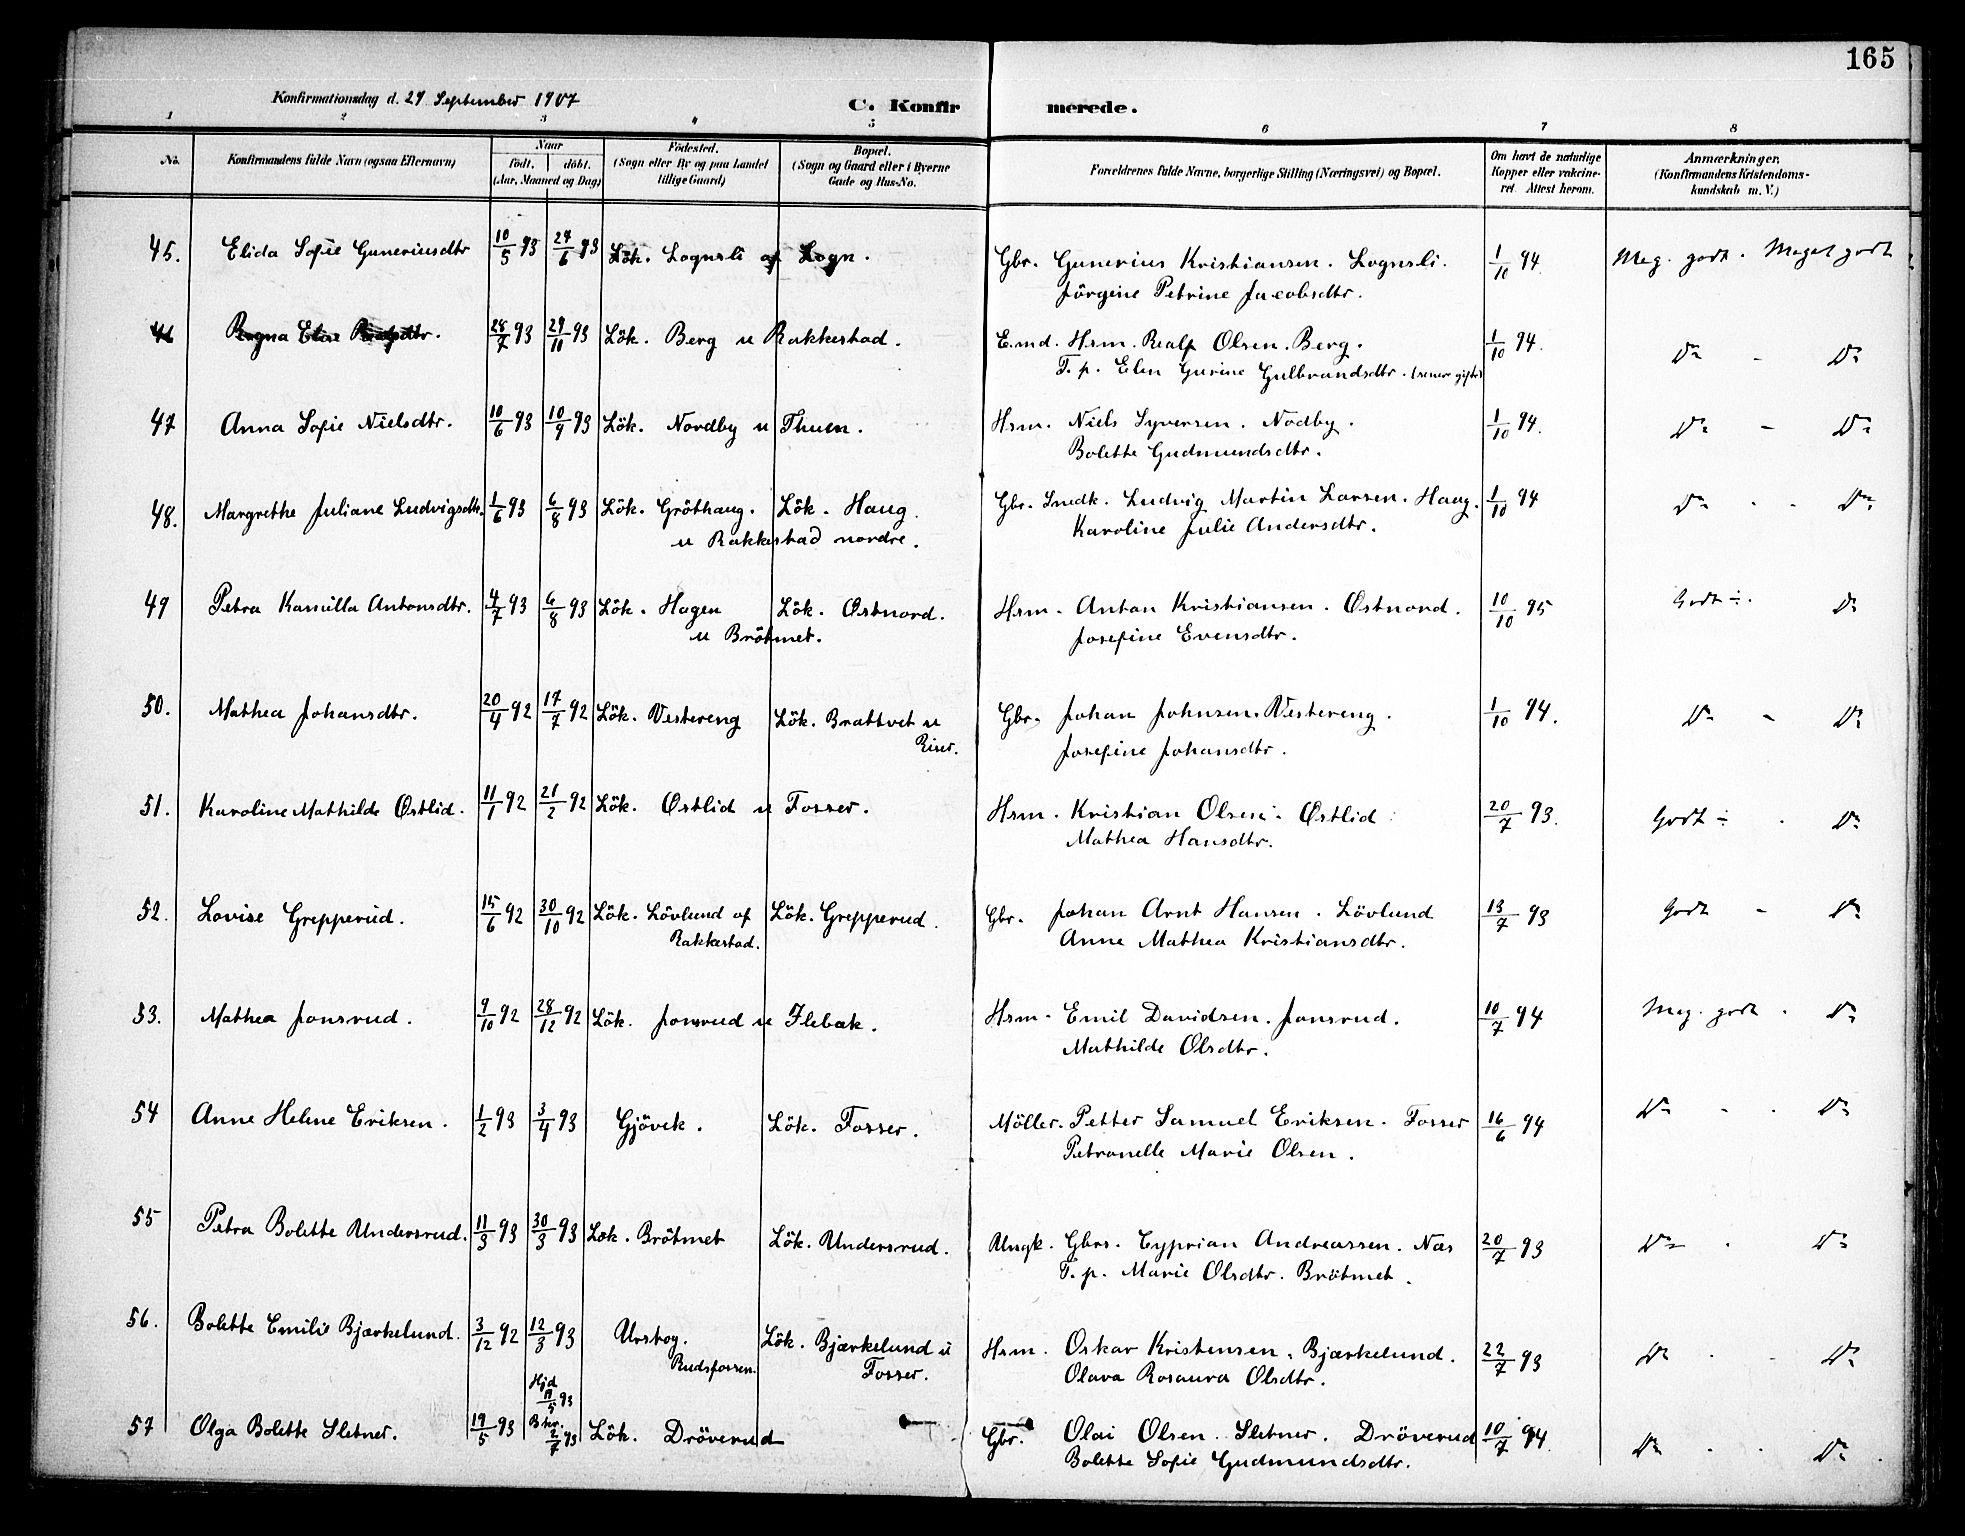 165
Konfirmationsdag d. 29 September 1907 C. Konfirmerede.
1 2 3 4 5 6 7 8
No. Konfirmandens fulde Navn (ogsaa Efternavn) Naar født. døbt. (Aar, Maaned og Dag) Fødested. (Sogn eller By og paa Landet tillige Gaard) Bopæl. (Sogn og Gaard eller i Byerne Gade og Hus-No. Forældrenes fulde Navne, borgerlige Stilling (Næringsvei) og Bopæl. Om havt de naturlige Kopper eller vakcineret. Attest herom. Anmærkninger. (Konfirmandens Kristendomskundskab m. V.)
45. Elida Sofie Guneriusdtr 10/5 93 24/6 93 Lök. Lognsli af Logn. Gbr. Gunerius Kristiansen. Lognsli. 1/10 94. Meg. godt. Meget godt
Jörgine Petrine Jacobsdtr.
46 Ragna Elise Realfsdtr. 28/7 93 29/11 93 Lök. Berg u Rakkestad. E.md. Hrm. Realf Olsen. Berg. 1/10 94. Do - Do
F. p. Elen Gurine Gulbrandsdtr. (senere gifte)
47 Anna Sofie Nielsdtr. 10/6 93 10/9 93 Lök. Nordby u Thuen. Hsm. Niels Syversen. Nodby. 1/10 94. Do - Do
Bolette Gudmundsdtr.
48. Margrethe Juliane Ludvigsdtr. 1/6 93 6/8 93 Lök. Gröthaug. Lök. Haug. Gbr. Snedk. Ludvig Martin Larsen. Haug. 1/10 94 Do - - Do
u Rakkestad nordre. Karoline Julie Andersdtr.
49 Petra Kamilla Antonsdtr. 4/7 93 6/8 93 Lök. Hagen Lök. Østnord. Hsm. Anton Kristiansen. Østnord. 10/10 95 Godt ÷. Do
u Brötmet. Josefine Evensdtr.
50. Mathea Johansdtr. 20/4 92 17/7 92 Lök. Vestereng Lök. Brattvet u Gbr. Johan Johnsen. Vestereng. 1/10 94. Do - Do
Riser. Josefine Johansdtr.
51. Karoline Mathilde Østlid. 11/1 92 21/2 92 Lök. Østlid u Fosser. Hsm. Kristian Olsen. Østlid 20/7 93. Godt ÷ . Do
Mathea Hansdtr.
52. Lovise Grepperud. 15/6 92 30/10 92 Lök. Lövlund af Lök. Grepperud. Gbr. Johan Arnt Hansen. Lövlund 13/7 93 Godt - Do
Rakkestad. Anne Mathea Kristiansdtr.
53. Mathea Jonsrud. 9/10 92 28/12 92 Lök. Jonsrud u Flebæk. Hsm. Emil Davidsen. Jonsrud. 10/7 94 Meg. godt. Do
Mathilde Olsdtr.
54 Anne Helene Eriksen. 1/2 93 3/4 93 Gjövik. Lök. Fosser. Möller. Petter Samuel Eriksen. Fosser 16/6 94 Do - . Do
Petronelle Marie Olsen.
55 Petra Bolette Undersrud. 11/3 93 30/3 93 Lök. Brötmet Lök. Undersrud. Ungk. Gbrs. Cyprian Andreassen. Næs 20/7 93 Do . Do
F. p. Marie Olsdtr. Brötmet.
56. Bolette Emilie Bjærkelund. 3/12 92 12/3 93 Urskog. Lök. Bjærkelund u Hsm. Oskar Kristensen. Bjærkelund. 22/7 93 Do . - Do
Rudsfossen. Fosser. Olava Rosaura Olsdtr.
57 Olga Bolette Sletner. 19/5 93 Hjd 19/5 93 B kr. 2/7 93 Lök. Dröverud Gbr. Olai Olsen Sletner. Dröverud 10/7 94. Do . . Do
Bolette Sofie Gudmundsdtr.